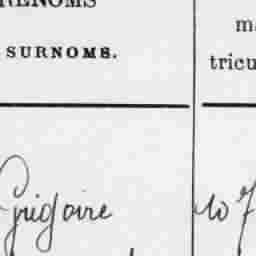 PRENOMS
SURNOMS.
ma
tricu
Grigoire